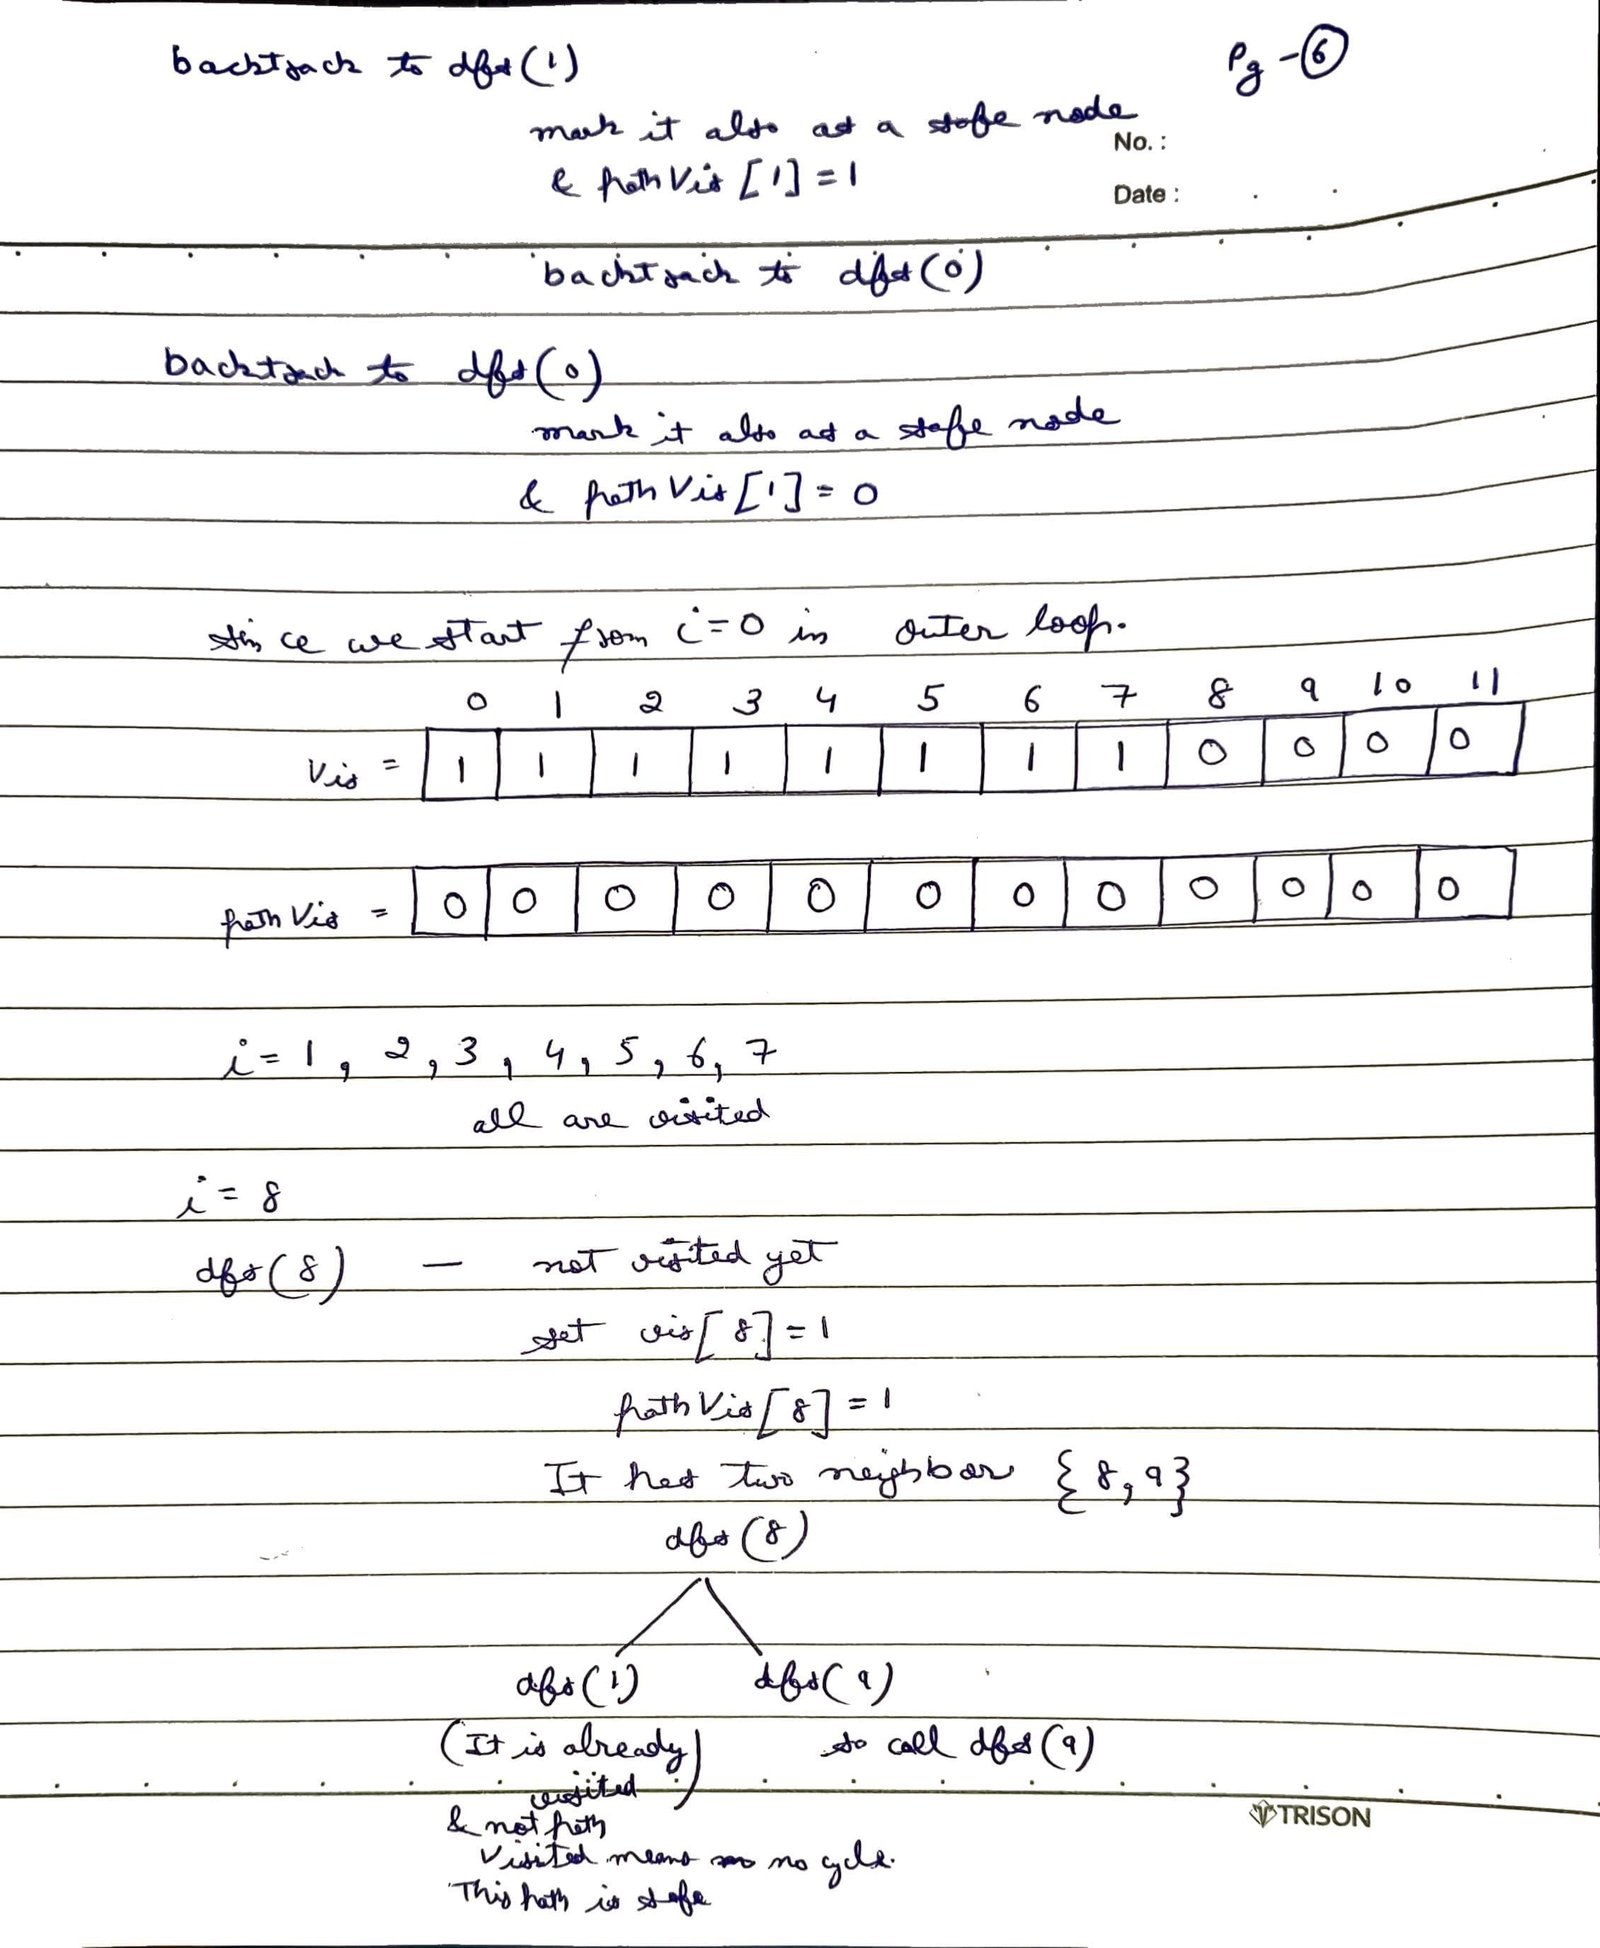 backtrack to dfs(1)
Pg - 6
mark it also as a safe node
No. :
& pathVis[1] = 1
Date :
backtrack to dfs(0)
backtrack to dfs(0)
mark it also as a safe node
& pathVis[1] = 0
Since we start from i=0 in outer loop.
0 1 2 3 4 5 6 7 8 9 10 11
Vis = 1 1 1 1 1 1 1 1 0 0 0 0
pathVis = 0 0 0 0 0 0 0 0 0 0 0 0
i = 1, 2, 3, 4, 5, 6, 7
all are visited
i = 8
dfs(8) — not visited yet
set vis[8] = 1
pathVis[8] = 1
It has two neighbor {8, 9}
dfs(8)
dfs(1) dfs(9)
(It is already visited) so call dfs(9)
TRISON
& not path
Visited means no cycle.
This path is safe